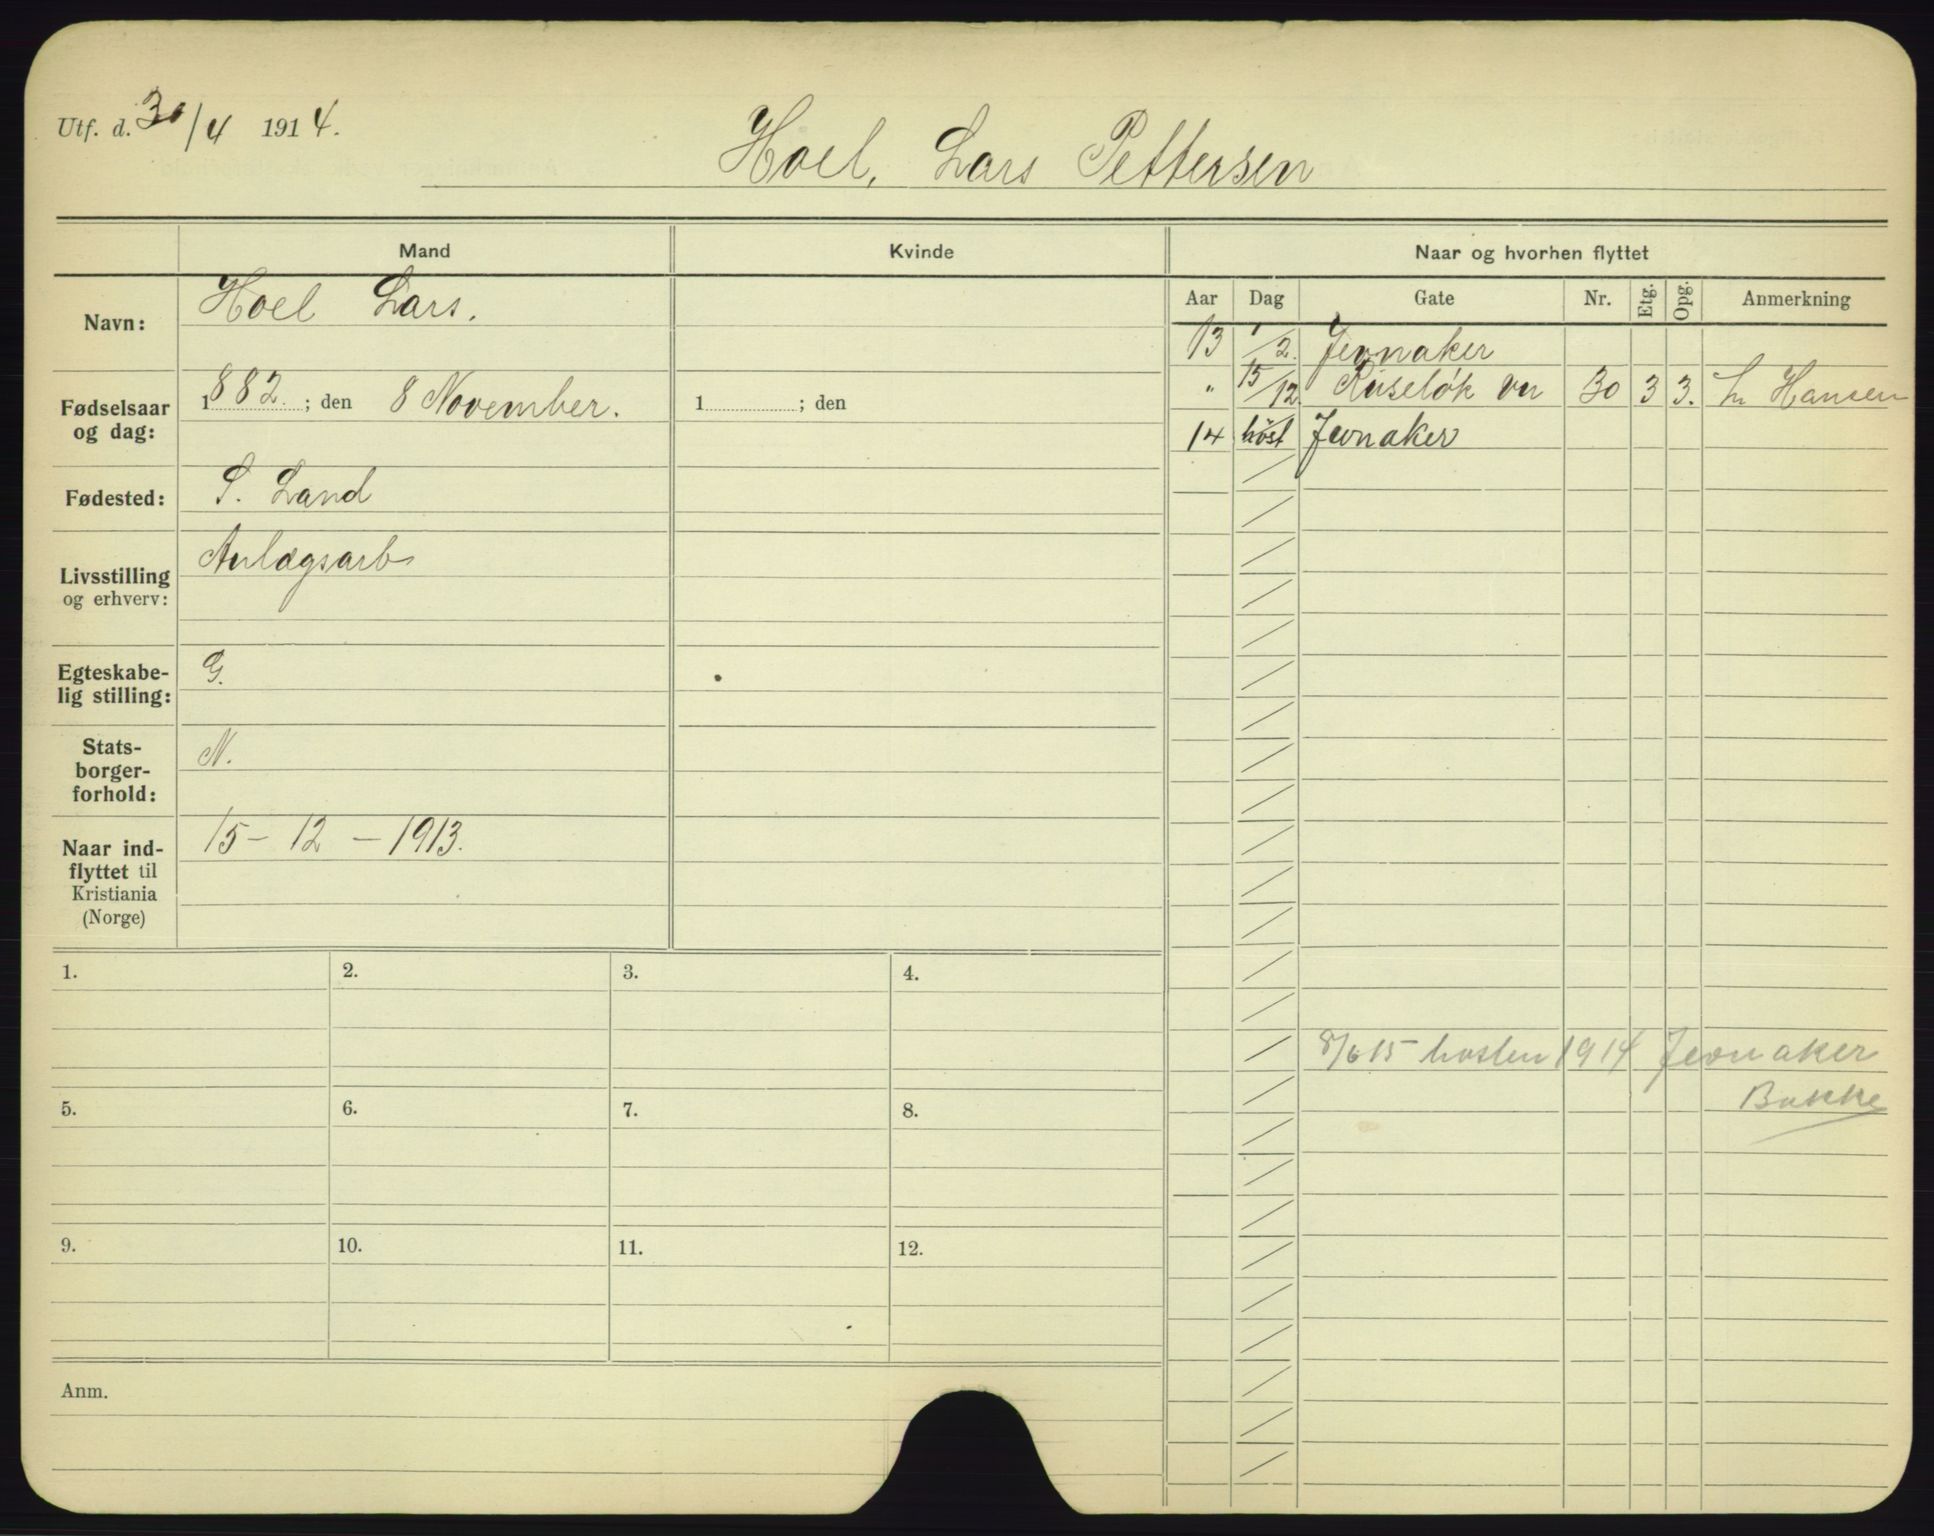 Utf. d. 30/4 1914.
Hoel, Lars Pettersen
Mand
Kvinde
Naar og hvorhen flyttet
Navn:
Hoel Lars.
Fødselsaar og dag:
1882. ; den 8 November.
1 ; den
Fødested:
S. Land
Livsstilling og erhverv:
Anlægsarb
Egteskabelig stilling:
G.
Statsborgerforhold:
N.
Naar indflyttet til Kristiania (Norge)
15 – 12 – 1913.
Aar Dag Gate Nr. Etg. Opg. Anmerkning
13 1/2. Jevnaker
" 15/12. Ruseløk vn 30 3 3. Hansen
14 høst Jevnaker
8/6 15 høsten 1914 Jevnaker
Bakke
1. 2. 3. 4.
5. 6. 7. 8.
9. 10. 11. 12.
Anm.